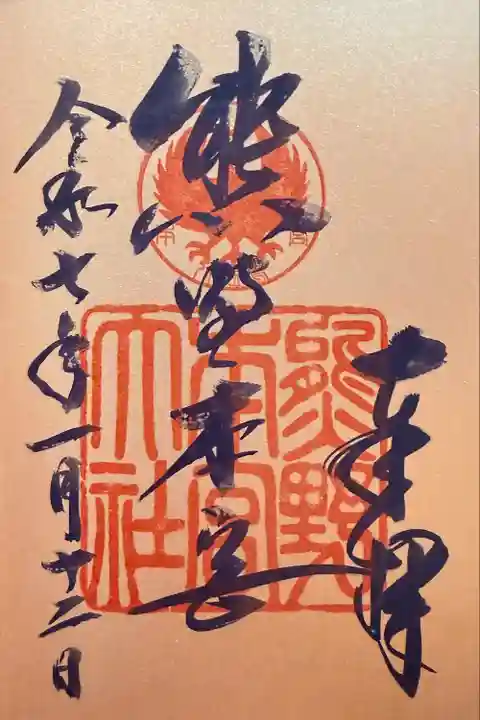 奉拝
熊野本宮
令和七年一月十二日
熊野
本宮
大社